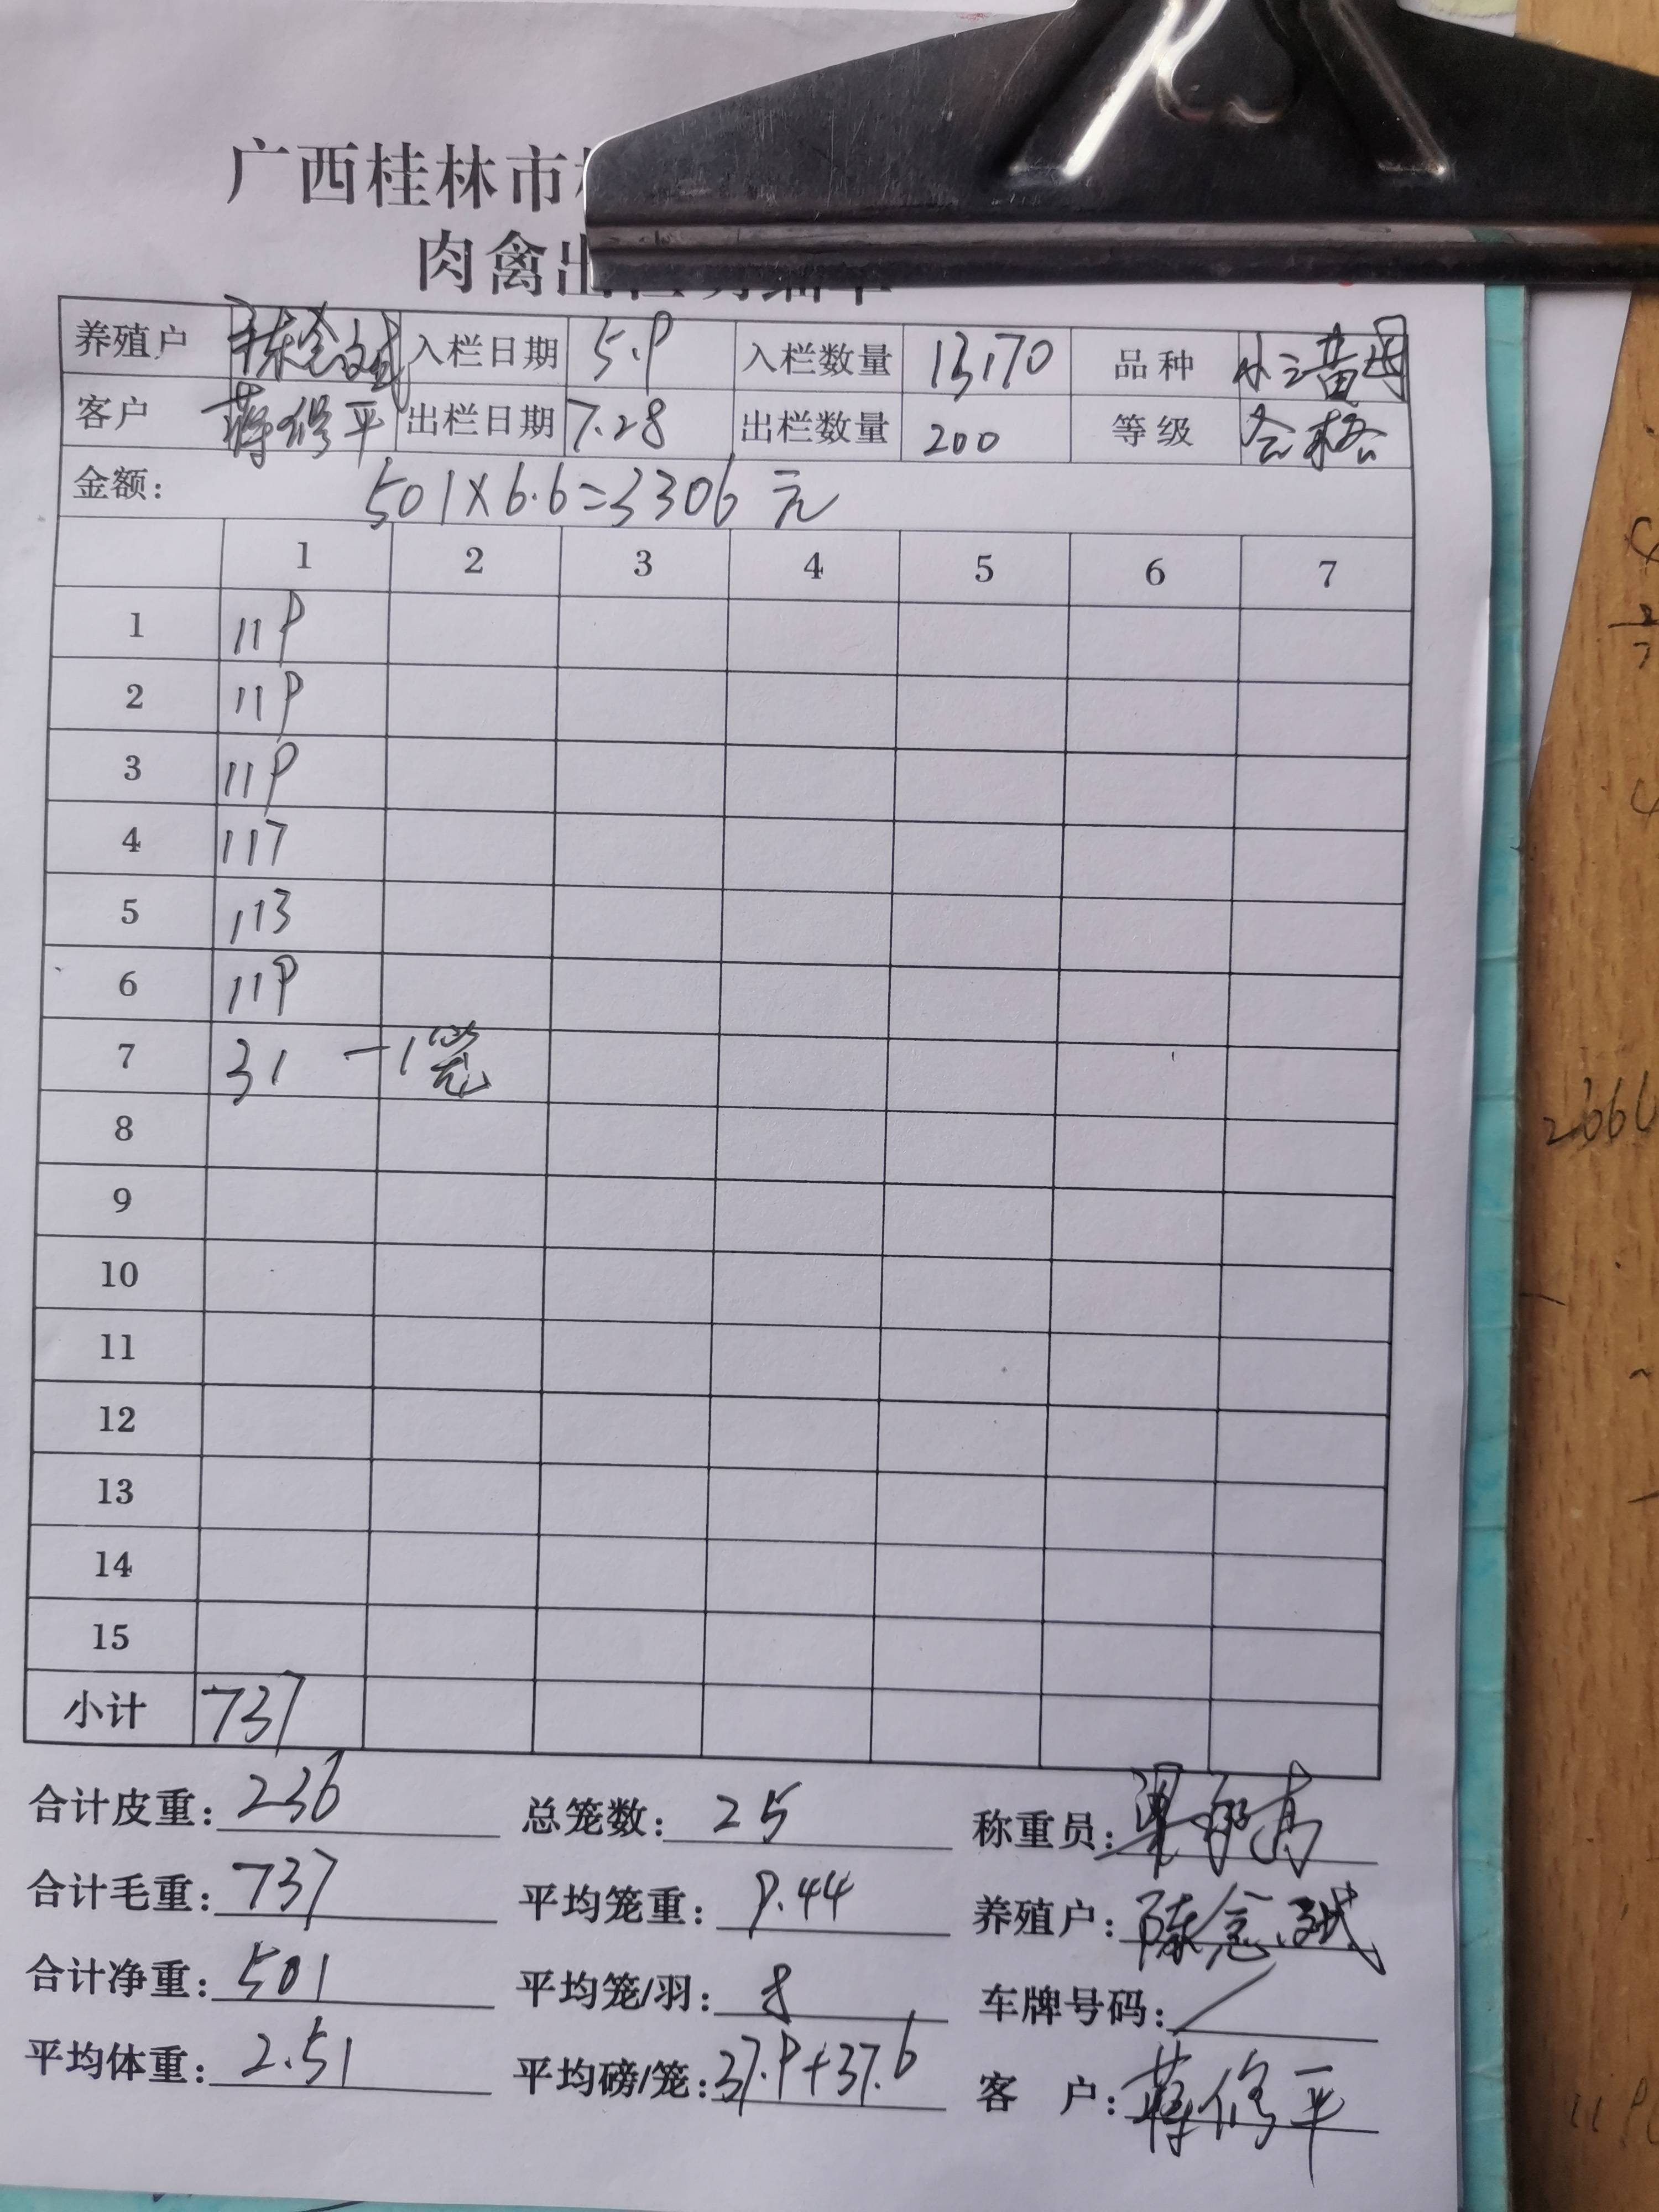 广西桂林市
肉禽出栏明细单
养殖户 陈念斌 入栏日期 5.9 入栏数量 13170 品种 小三黄母
客户 蒋修平 出栏日期 7.28 出栏数量 200 等级 合格
金额: 501×6.6=3306元
1 2 3 4 5 6 7
1 119
2 119
3 119
4 117
5 113
6 119
7 31 一1笼
8
9
10
11
12
13
14
15
小计 737
合计皮重: 236 总笼数: 25 称重员:
合计毛重: 737 平均笼重: 9.44 养殖户: 陈念斌
合计净重: 501 平均笼/羽: 8 车牌号码: /
平均体重: 2.51 平均磅/笼: 37.9+37.6 客 户: 蒋修平